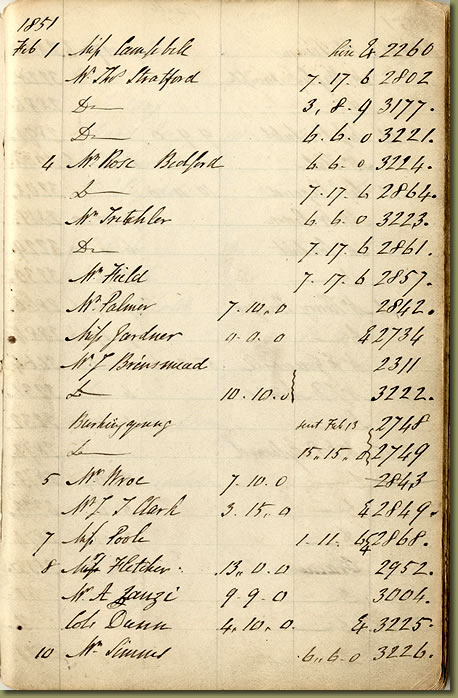 1851
Feb 1 Miss Campbell hire & 2260
Mr Thos Stratford 7.17.6 2802
Do 3.8.9 3177.
Do 6.6.0 3221.
4 Mr Rose Bedford 6.6.0 3224.
Do 7.17.6 2864.
Mr 6.6.0 3223.
Do 7.17.6 2861.
Mr Field 7.17.6 2857.
Mr Palmer 7.10.0 2842.
Miss Gardner 0.0.0 & 2734
Mr J Brinsmead 2311
Do 10.10.0 3222.
sent Feb 13 2748
Do 15.15.0 2749
5 Mr Wroe 7.10.0 2843
Mr J T Clark 3.15.0 & 2849.
7 Miss Poole 1.11.6 & 2868.
8 Fletcher. 13.0.0 2952.
Mr A 9.9.0 3004.
Col. Dunn 4.10.0 & 3225.
10 Mr Simms 6.6.0 3226.